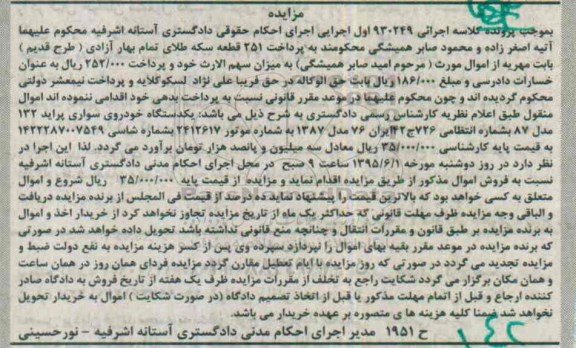 مزایده
بموجب پرونده کلاسه اجرائی ۹۳۰۲۴۹ اول اجرایی اجرای احکام حقوقی دادگستری آستانه اشرفیه محکوم علیهما
آتیه اصغر زاده و محمود صابر همیشگی محکومند به پرداخت ۲۵۱ قطعه سکه طلای تمام بهار آزادی ( طرح قدیم )
بابت مهریه از اموال مورث ( مرحوم امید صابر همیشگی) به میزان سهم الارث خود و پرداخت ۲۵۲/۰۰۰ ریال به عنوان
خسارات دادرسی و مبلغ ۱۸۶/۰۰۰ ریال بابت حق الوکاله در حق فریبا علی نژاد لسکوکلایه و پرداخت نیمعشر دولتی
محکوم گردیده اند و چون محکوم علیهما در موعد مقرر قانونی نسبت به پرداخت بدهی خود اقدامی ننموده اند اموال
منقول طبق اعلام نظریه کارشناس رسمی دادگستری به شرح ذیل می باشد: یکدستگاه خودروی سواری پراید ۱۳۲
مدل ۸۷ بشماره انتظامی ۷۲۶ج۴۳ایران ۷۶ مدل ۱۳۸۷ به شماره موتور ۲۴۱۲۶۱۷ بشماره شاسی ۱۴۲۲۲۸۷۰۰۷۵۴۹
به قیمت پایه کارشناسی ۳۵/۰۰۰/۰۰۰ ریال معادل سه میلیون و پانصد هزار تومان برآورد می گردد. لذا این اجرا در
نظر دارد در روز دوشنبه مورخه ۱۳۹۵/۶/۱ ساعت ۹ صبح در محل اجرای احکام مدنی دادگستری آستانه اشرفیه
نسبت به فروش اموال مذکور از طریق مزایده اقدام نماید و مزایده از قیمت پایه ۳۵/۰۰۰/۰۰۰ ریال شروع و اموال
متعلق به کسی خواهد بود که بالاترین قیمت را پیشنهاد نماید ده درصد از قیمت فی المجلس از برنده مزایده دریافت
و الباقی وجه مزایده ظرف مهلت قانونی که حداکثر یک ماه از تاریخ مزایده تجاوز نخواهد کرد از خریدار اخذ و اموال
به برنده مزایده بر طبق قانون و مقررات انتقال و چنانچه منع قانونی نداشته باشد تحویل داده خواهد شد در صورتی
که برنده مزایده در موعد مقرر بقیه بهای اموال را نپردازد سپرده وی پس از کسر هزینه مزایده به نفع دولت ضبط و
مزایده تجدید می گردد در صورتی که روز مزایده با ایام تعطیل مقارن گردد مزایده فردای همان روز در همان ساعت
و همان مکان برگزار می گردد شکایت راجع به تخلف از مقررات مزایده ظرف یک هفته از تاریخ فروش به دادگاه صادر
کننده ارجاع و قبل از اتمام مهلت مذکور یا قبل از اتخاذ تصمیم دادگاه (در صورت شکایت ) اموال به خریدار تحویل
نخواهد شد ضمنا کلیه هزینه ها ی متصوره بر عهده خریدار می باشد.
ح ۱۹۵۱ مدیر اجرای احکام مدنی دادگستری آستانه اشرفیه - نورحسینی